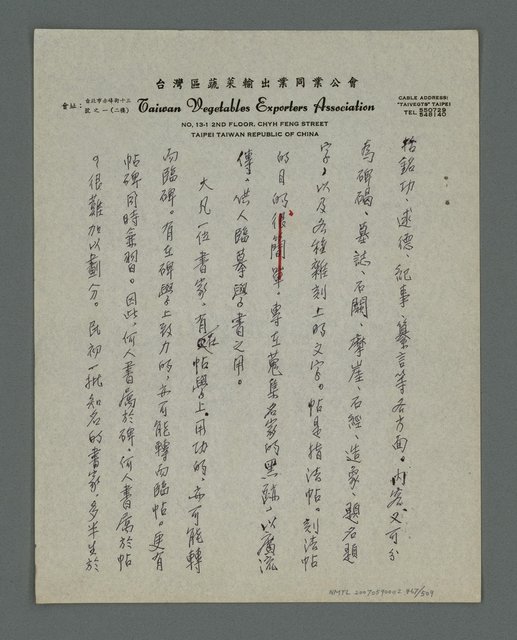 台灣區蔬菜輸出業同業公會
會址：台北市赤峰街十三號之一(二樓)
Taiwan Vegetables Exporters Association
NO. 13-1 2ND FLOOR, CHYH FENG STREET
TAIPEI TAIWAN REPUBLIC OF CHINA
CABLE ADDRESS:
"TAIVEGTS" TAIPEI
TEL 550729
548140
括銘功、述德、紀事、纂言等各方面。內容又可分
為碑碣、墓誌、石闕、摩崖、石經、造象、題名題
字，以及各種雜刻上的文字。帖是指法帖。刻法帖
的目的很簡單，專在蒐集名家的墨跡，以廣流
傳，供人臨摹學書之用。
大凡一位書家，有在帖學上用功的，亦可能轉
而臨碑。有在碑學上致力的，亦可能轉而臨帖。更有
帖碑同時兼習。因此，何人書屬於碑，何人書屬於帖
，很難加以劃分。民初一批知名的書家，多半生於
NMTL 20070590002 467/509